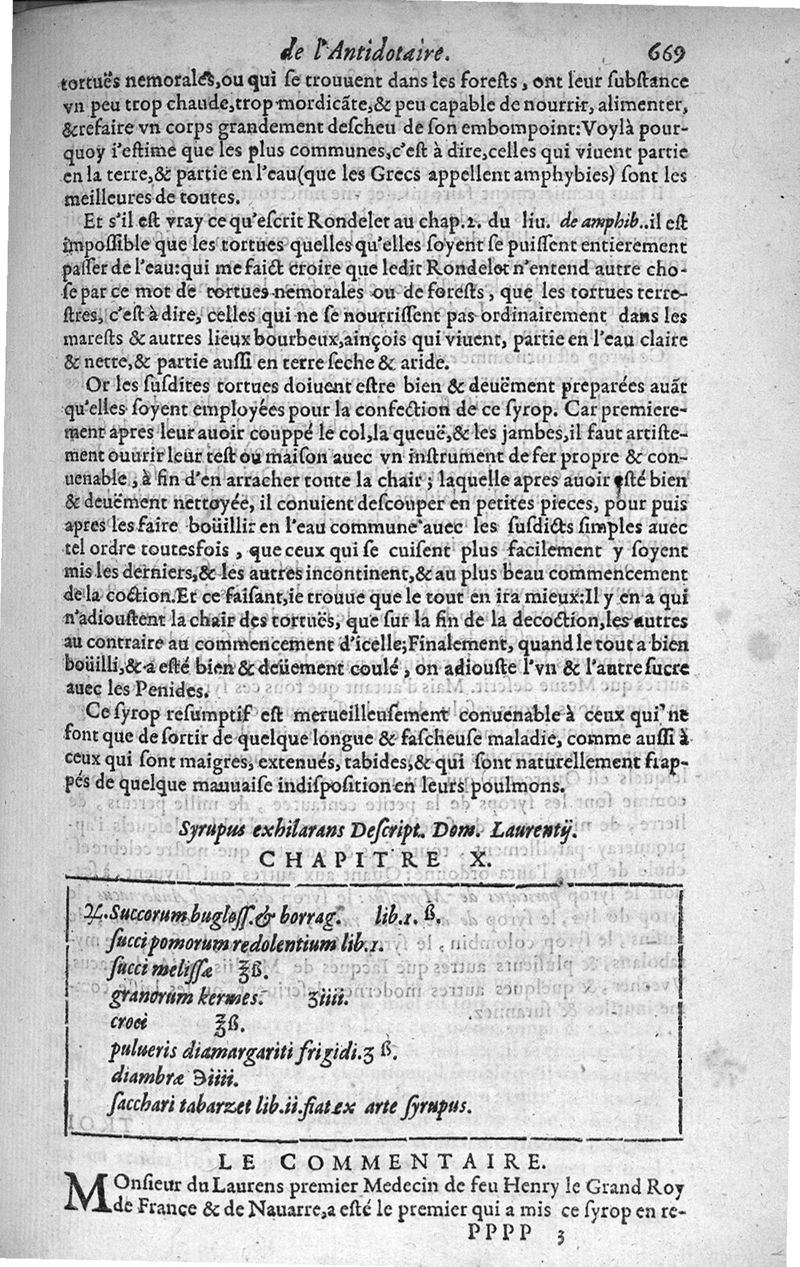 de l'Antidotaire. 669
tortuës nemorales,ou qui se trouuent dans les forests, ont leur substance
vn peu trop chaude,trop mordicãte,& peu capable de nourrir, alimenter,
&refaire vn corps grandement descheu de son embompoint:Voylà pour-
quoy i'estime que les plus communes,c'est à dire,celles qui viuent partie
en la terre,& partie en l'eau(que les Grecs appellent amphybies) sont les
meilleures de toutes.
Et s'il est vray ce qu'escrit Rondelet au chap.2. du liu. de amphib..il est
impossible que les tortues quelles qu'elles soyent se puissent entierement
passer de l'eau:qui me faict croire que ledit Rondelet n'entend autre cho-
se par ce mot de tortues nemorales ou de forests, que les tortues terre-
stres, c'est à dire, celles qui ne se nourrissent pas ordinairement dans les
marests & autres lieux bourbeux,ainçois qui viuent, partie en l'eau claire
& nette,& partie aussi en terre seche & aride.
Or les susdites tortues doiuent estre bien & deuëment preparées auãt
qu'elles soyent employées pour la confection de ce syrop. Car premiere-
ment apres leur auoir couppé le col,la queuë,& les jambes,il faut artiste-
ment ouurir leur test ou maison auec vn instrument de fer propre & con-
uenable, à fin d'en arracher toute la chair; laquelle apres auoir esté bien
& deuëment nettoyée, il conuient descouper en petites pieces, pour puis
apres les faire boüillir en l'eau commune auec les susdicts simples auec
tel ordre toutesfois, que ceux qui se cuisent plus facilement y soyent
mis les derniers,& les autres incontinent,& au plus beau commencement
de la coction.Et ce faisant,ie trouue que le tout en ira mieux:Il y en a qui
n'adioustent la chair des tortuës, que sur la fin de la decoction,les autres
au contraire au commencement d'icelle;Finalement, quand le tout a bien
boüilli,& a esté bien & deüement coulé, on adiouste l'vn & l'autre sucre
auec les Penides.
Ce syrop resumptif est merueilleusement conuenable à ceux qui ne
font que de sortir de quelque longue & fascheuse maladie, comme aussi à
ceux qui sont maigres, extenués, tabides,& qui sont naturellement frap-
pés de quelque mauuaise indisposition en leurs poulmons.
Syrupus exhilarans Descript. Dom. Laurentij.
CHAPITRE X.
♃.Succorum bugloss.& borrag. lib.1. ß.
succi pomorum redolentium lib.1.
succi melissæ ℥ß.
granorum kermes. ʒiiii.
croci ℥ß.
pulueris diamargariti frigidi.ʒ ß.
diambræ ℈iiii.
sacchari tabarzet lib.ii.fiat ex arte syrupus.
LE COMMENTAIRE.
Monsieur du Laurens premier Medecin de feu Henry le Grand Roy
de France & de Nauarre,a esté le premier qui a mis ce syrop en re-
PPPP 3